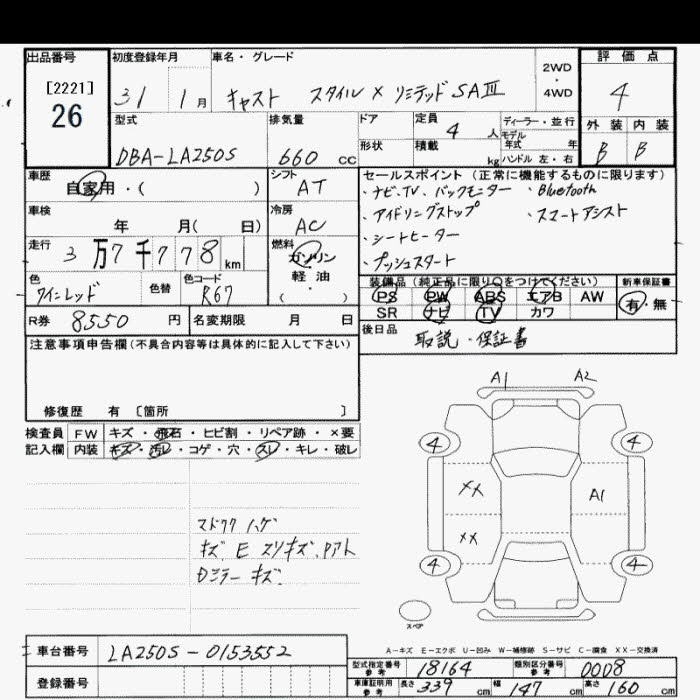 出品番号 初度登録年月 車名・グレード 2WD・4WD 評価点
[2221] 26 31 1月 キャスト スタイル X リミテッド SAⅢ 4
型式 排気量 ドア 定員 4人 ディーラー・並行 外装 内装
モデル年式 年
DBA-LA250S 660 cc 形状 積載 kg ハンドル 左・右 B B
車歴 自家用・( ) シフト AT
セールスポイント(正常に機能するものに限ります)
・ナビ・TV、バックモニター ・Bluetooth
・アイドリングストップ ・スマートアシスト
・シートヒーター
・プッシュスタート
車検 年 月( 日) 冷房 AC
走行 3万7千778km 燃料 ガソリン 軽油 ( )
色 ワインレッド 色替 色コード R67
装備品(純正品に限り○をつけてください) 新車保証書
PS PW ABS エアB AW 有・無
SR ナビ TV カワ
R券 8550円 名変期限 月 日
後日品 取説・保証書
注意事項申告欄(不具合内容等は具体的に記入して下さい)
修復歴 有 [箇所 ]
検査員 FW キズ・飛石・ヒビ割・リペア跡・×要
記入欄 内装 キズ・汚レ・コゲ・穴・スレ・キレ・破レ
マドワク ハゲ
キズ E スリキズ
ミラー キズ
A1 A2
4 4
XX A1
XX
4 4
スペア
A-キズ E-エクボ U-凹み W-補修跡 S-サビ C-腐食 XX-交換済
車台番号 LA250S-0153552
型式指定番号 参考 18164 類別区分番号 参考 0008
登録番号
車庫証明用 参考 長さ 339cm 幅 147cm 高さ 160cm